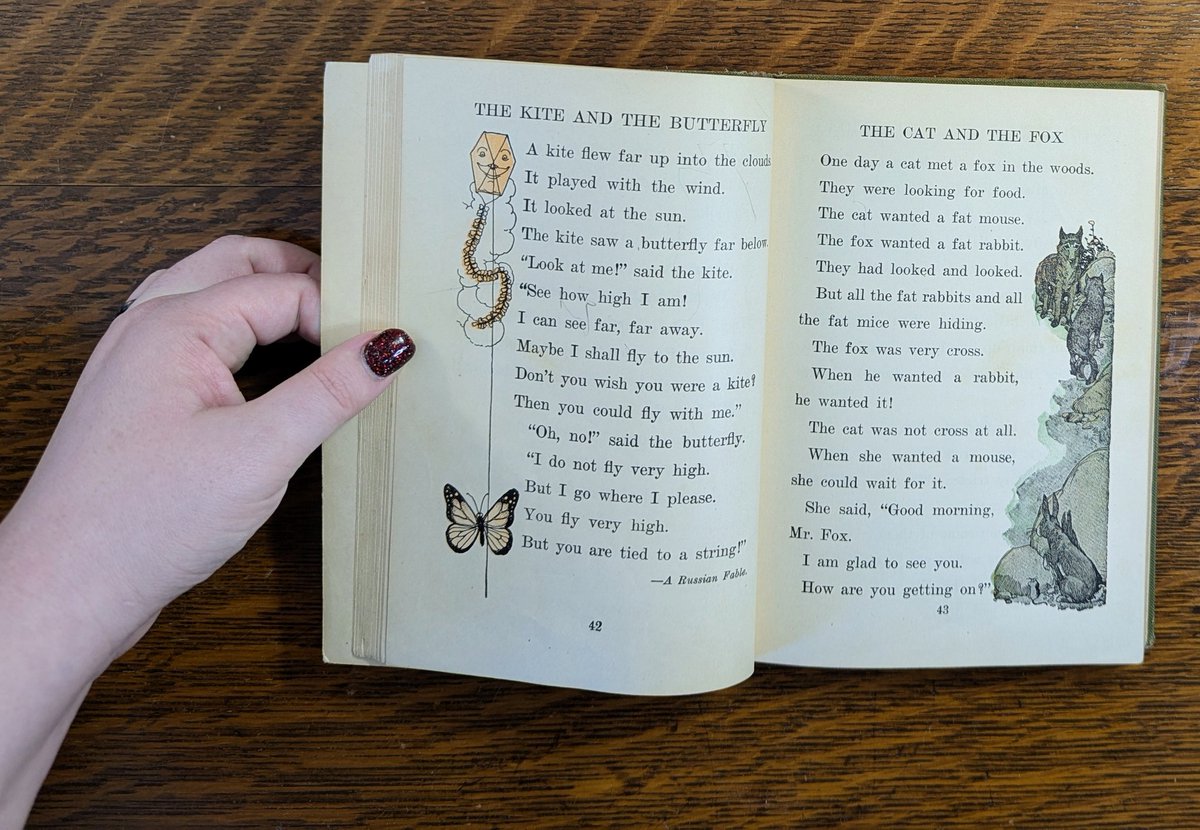 THE KITE AND THE BUTTERFLY
A kite flew far up into the clouds
It played with the wind.
It looked at the sun.
The kite saw a butterfly far below.
“Look at me!” said the kite.
“See how high I am!
I can see far, far away.
Maybe I shall fly to the sun.
Don’t you wish you were a kite?
Then you could fly with me.”
“Oh, no!” said the butterfly.
“I do not fly very high.
But I go where I please.
You fly very high.
But you are tied to a string!”
—A Russian Fable.
42
THE CAT AND THE FOX
One day a cat met a fox in the woods.
They were looking for food.
The cat wanted a fat mouse.
The fox wanted a fat rabbit.
They had looked and looked.
But all the fat rabbits and all
the fat mice were hiding.
The fox was very cross.
When he wanted a rabbit,
he wanted it!
The cat was not cross at all.
When she wanted a mouse,
she could wait for it.
She said, “Good morning,
Mr. Fox.
I am glad to see you.
How are you getting on?”
43